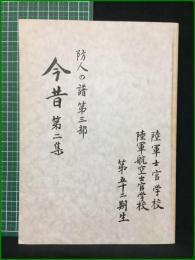 陸軍士官学校
陸軍航空士官学校
第五十二期生
防人の譜 第三部
今昔 第二集